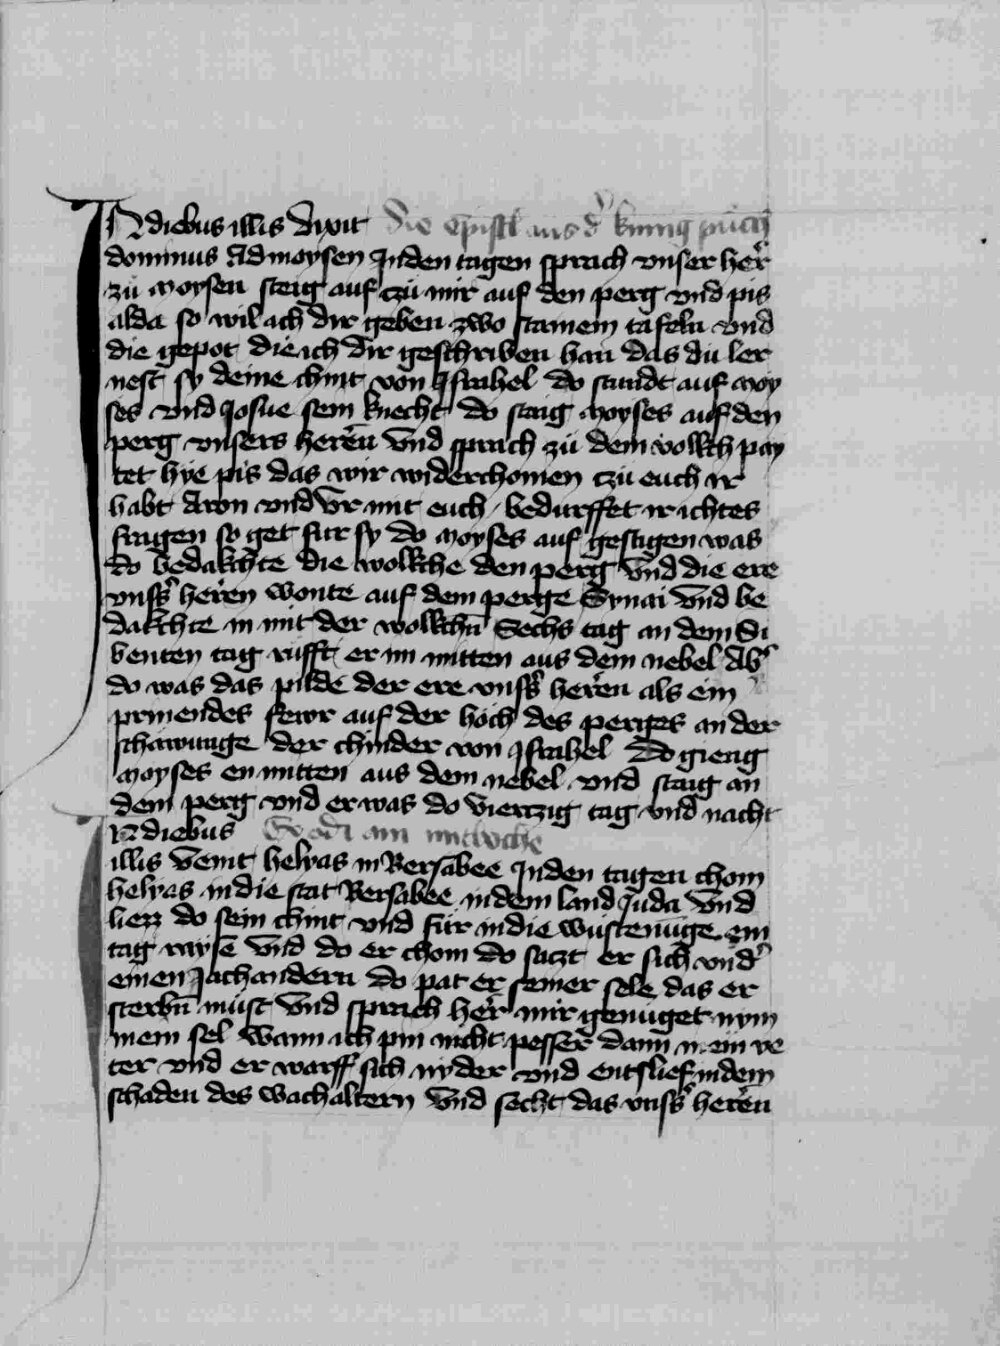 IN diebus illis dixit Die epistl aus d̾ kunig puch
dominus Ad moysen In den tagen sprach vnser her̾
zu Moysen steig auf czu mir auf den perg vnd pis
alda so wil ich dir geben zwo stainein tafeln vnd
die gepot die ich dir geschriben han das du ler
nest sy deine chint von Israhel do stundt auf Moy
ses vnd Josue sein knecht do staig Moyses auf den
perg vnsers heren̄ Vnd sprach zu dem vollkch pay
tet hye pis das wir widerchomen czu euch ir
habt Aron vnd Vr mit euch bedurffet ir ichtes
fragen so get fur sy do Moyses auf gestigen was
do bedakchte die wolkche den perg Vnd die ere
vns̾s heren wonte auf dem perge Synai Vnd be
dakchte in mit der wolkchn̄ Sechs tag an dem Si
benten tag rufft er im mitten aus dem nebel Ab̾
do was das pilde der ere vns̾s heren als ein
prinendes fewr auf der höch des perges an der
schawunge der chinder von Israhel Do gieng
Moyses en mitten aus dem nebel vnd staig an
dem perg vnd er was do Viertzig tag vnd nacht
IN diebus am mitboche
illis Venit helyas in Bersabee In den tagen chom
helyas in die stat Bersabee in dem land Juda Vnd
liezz do sein chint vnd für in die wüstenunge ein
tag rayse Vnd do er chom do saczt er sich vnd̾
einen Jachandern do pat er seiner sele das er
sterbn̄ müst Vnd sprach her̾ mir genuget nym
mein sel Wann ich pin nicht pesser dann mein ve
ter vnd er warff sich nyder vnd entslief in dem
schaden des wachaltern Vnd secht das vns̾s heren̄